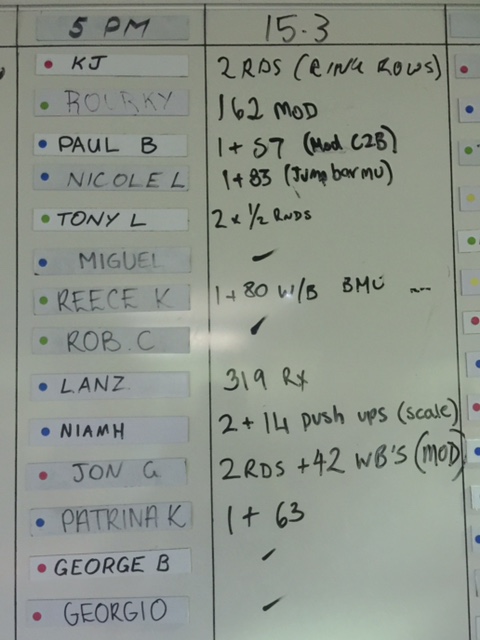 5 PM 15.3
KJ 2 RDS (RING ROWS)
ROURKY 162 MOD
PAUL B 1 + 57 (Mod C2B)
NICOLE L 1 + 83 (Jump bar mu)
TONY L 2 x 1/2 RNDS
MIGUEL ✓
REECE K 1 + 80 W/B BMU ...
ROB. C ✓
LANZ 319 Rx
NIAMH 2 + 14 push ups (scale)
JON G 2 RDS + 42 WB'S (MOD)
PATRINA K 1 + 63
GEORGE B ✓
GEORGIO ✓